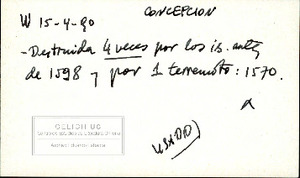 CONCEPCION
W 15-4-90
- Destruida 4 veces por los is. antes
de 1598 y por 1 terremoto: 1570.
USADO
CELICH UC